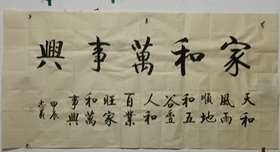 家和萬事興
天和
風雨
順地
和五
谷豐
人和
百業
旺家
和萬
事興
甲辰